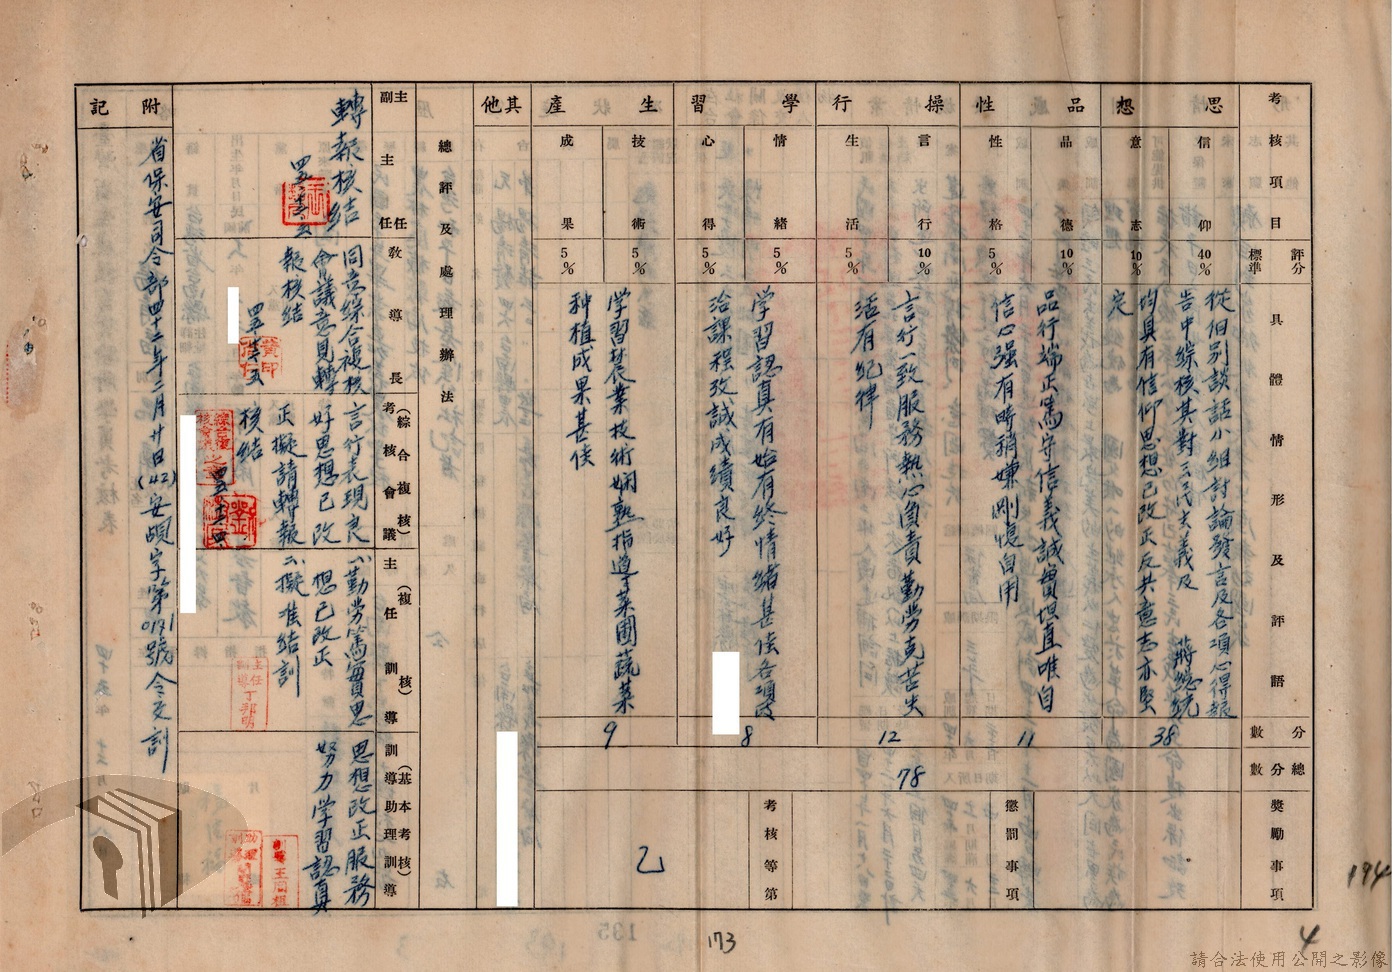 考核項目
評分標準
具體情形及評語
分數
總分數
獎勵事項
思想
信仰
40%
意志
10%
從個別談話小組討論發言及各項心得報
告中綜核其對三民主義及 蔣總統
均具有信仰思想已改正反共意志亦堅
定
38
品性
品德
10%
性格
5%
品行端正篤守信義誠實坦直唯自
信心强有時稍嫌剛愎自用
11
懲罰事項
操行
言行
10%
生活
5%
言行一致服務熱心負責勤勞克苦生
活有紀律
12
78
學習
情緒
5%
心得
5%
學習認真有始有終情緒甚佳各項政
治課程考試成績良好
8
考核等第
生產
技術
5%
成果
5%
學習農業技術嫻熟指導菜圃蔬菜
種植成果甚佳
9
乙
其他
總評及處理辦法
主副主任
轉報核結
教導長
同意綜合複核
會議意見轉
報核結
(綜合複核)
考核會議
言行表現良
好思想已改
正擬請轉報
核結
(複核)
主任訓導
勤勞篤實思
想已改正
擬准結訓
主任訓導
丁邦明
(基本考核)
訓導助理訓導
思想改正服務
努力學習認真
附記
省保安司令部四十二年二月廿日(42)安頤字第0191號令交訓
173
4
194
請合法使用公開之影像